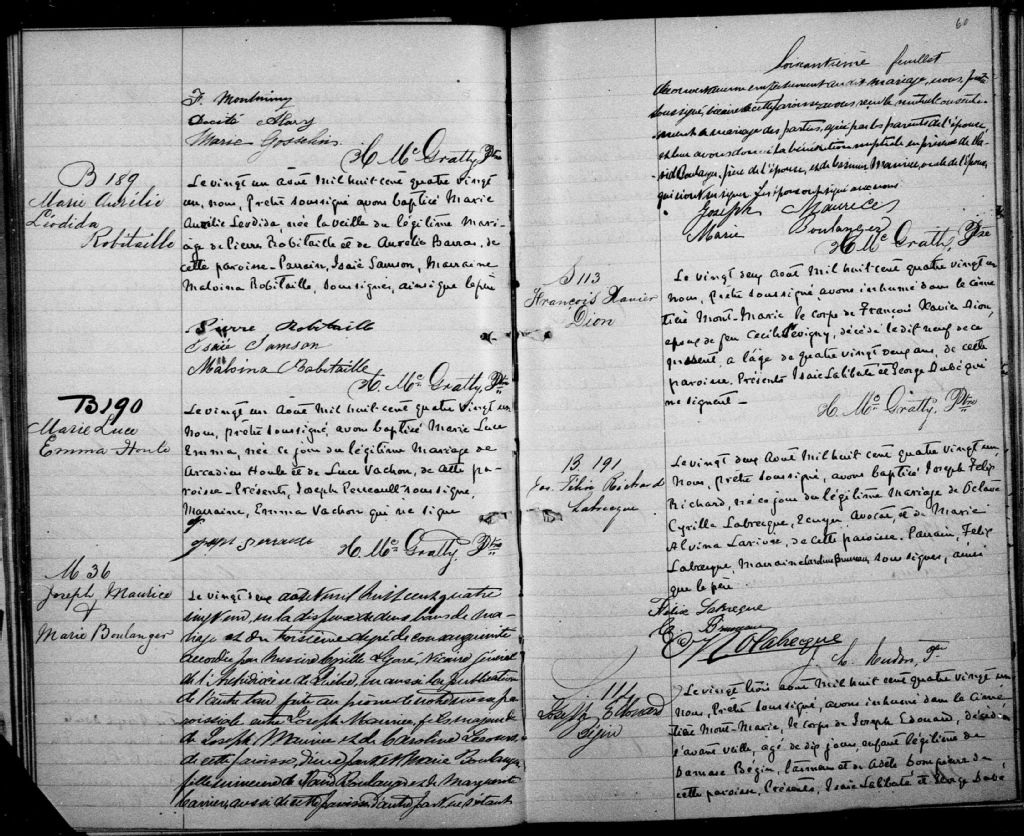 F. Montminy
Marie Gosselin
H. Mc Gratty, Ptre
B 189
Marie Aurélie
Léodida
Robitaille
Le vingt un Août Mil huit cent quatre vingt
un, nous, prêtre soussigné avons baptisé Marie
Aurélie Leodida, née la veille du légitime Mari-
age de Pierre Robitaille et de Aurélie Barras, de
cette paroisse - Parrain, Isaïe Samson, Marraine
Malvina Robitaille, soussignés, ainsi que le père
Pierre Robitaille
Isaïe Samson
Malvina Robitaille
H. Mc Gratty, Ptre
B 190
Marie Luce
Emma Houle
Le vingt un Août Mil huit cent quatre vingt un
Nous, prêtre soussigné, avons baptisé Marie Luce
Emma, née ce jour du légitime Mariage de
Arcadien Houle et de Luce Vachon, de cette pa-
roisse - Présents, Joseph Perreault soussigné,
Marraine, Emma Vachon qui ne signe
H. Mc Gratty, Ptre
M 36
Joseph Maurice
&
Marie Boulanger
Le vingt deux août Mil huit cent quatre
vingt un, vu la dispense de deux bans de ma-
riage et du troisième degré de consanguinité
accordée par Messire Cyrille Légaré, Vicaire Général
de l'Archidiocèse de Québec, vu aussi la publication
de l'autre ban faite au prône de notre messe pa-
roissiale entre Joseph Maurice, fils majeur de
de Joseph Maurice et de Caroline
de cette paroisse, d'une part et Marie Boulanger
fille mineure de David Boulanger et de Marguerite
Carrier, aussi de cette paroisse d'autre part ne s'étant
60
Soixantième feuillet
découvert aucun empêchement au dit mariage, nous, prêtre
soussigné, vicaire de cette paroisse, avons reçu le mutuel consente-
ment de mariage des parties, agréé par les parents de l'épouse,
et leur avons donné la bénédiction nuptiale en présence de Da-
vid Boulanger, père de l'épouse, et de Maurice, oncle de l'époux,
qui n'ont su signer. Les époux ont signé avec nous
Joseph Maurice
Marie Boulanger
H. Mc Gratty, Ptre
S 113
François Xavier
Dion
Le vingt deux Août Mil huit cent quatre vingt un
Nous, prêtre soussigné, avons inhumé dans le cime-
tière Mont-Marie le corps de François Xavier Dion,
époux de feu Cecile Levigny, décédé le dix neuf de ce
present, a l'âge de quatre vingt deux ans, de cette
paroisse, Présents Isaïe Laliberté et George Dubé qui
ne signent -
H. Mc Gratty, Ptre
B 191
Jos. Félix Richard
Labrecque
Le vingt deux Août Mil huit cent quatre vingt un,
Nous, prêtre soussigné, avons baptisé Joseph Felix
Richard, né ce jour du légitime Mariage de Octave
Cyrille Labrecque, Ecuyer Avocat, et de Marie
Alvina Larivée, de cette paroisse. Parrain, Felix
Labrecque, Marraine Caroline Bruneau soussignés, ainsi
que le père
Félix Labrecque
C. Bruneau
O C Labrecque
S. 114
Joseph Edouard
Bégin
Le vingt trois août Mil huit cent quatre vingt un
Nous, Prêtre soussigné, avons inhumé dans le cime-
tière Mont-Marie, le corps de Joseph Edouard, décédé
l'avant veille, agé de dix jours, enfant légitime de
Damase Bégin, et de Adèle de
cette paroisse, Présents, Isaïe Laliberté et George Dubé